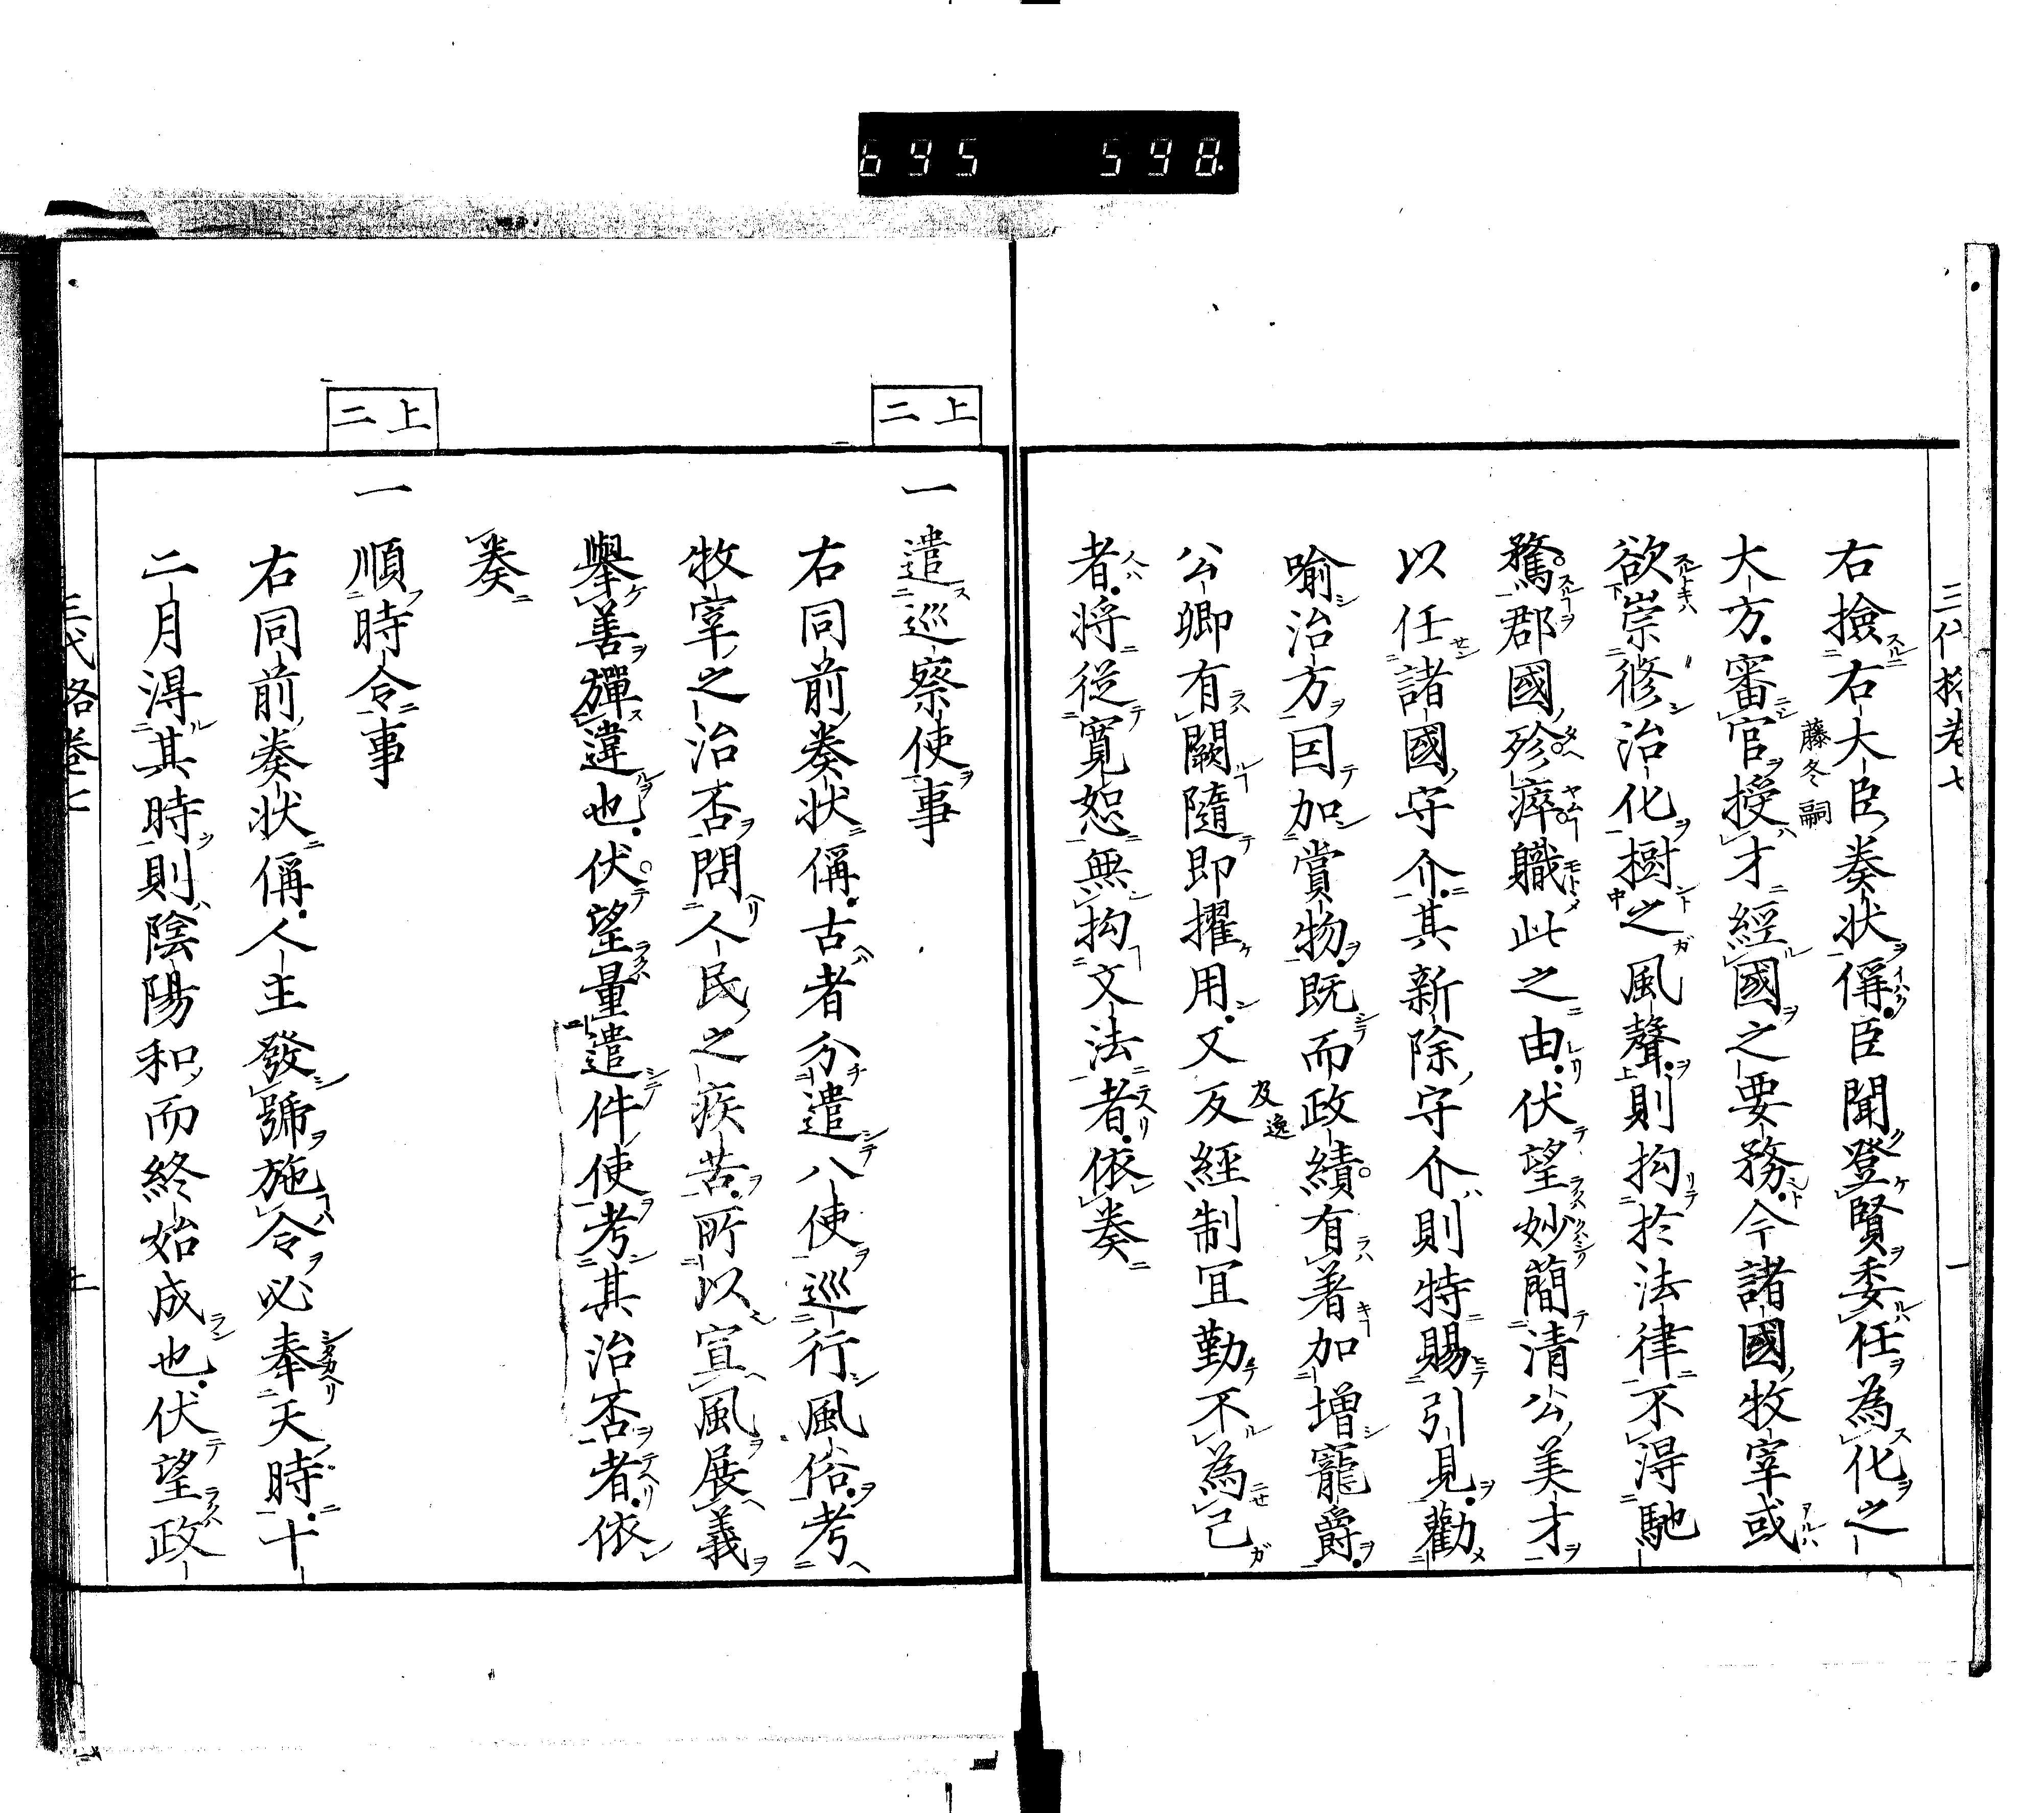 695 598
三代格卷七
右撿右大臣奏状偁臣聞登賢委任為化之
藤冬嗣
大方審官授才經國之要務今諸國牧宰或
欲崇修治化樹之風聲則拘於法律不得馳
騖郡國殄瘁職此之由伏望妙簡清公美才
以任諸國守介其新除守介則特賜引見勸
喻治方因加賞物既而政績有著加増寵爵
公卿有闕隨即擢用又反經制冝勤不為己
及逸
者將從寛恕無拘文法者依奏
上二
一遣巡察使事
右同前奏状偁古者分遣八使巡行風俗考
牧宰之治否問人民之疾苦所以宣風展義
擧善彈違也伏望量遣件使考其治否者依
奏
上二
一順時令事
右同前奏状偁人主發號施令必奉天時十
二月得其時則陰陽和而終始成也伏望政
三代格卷七